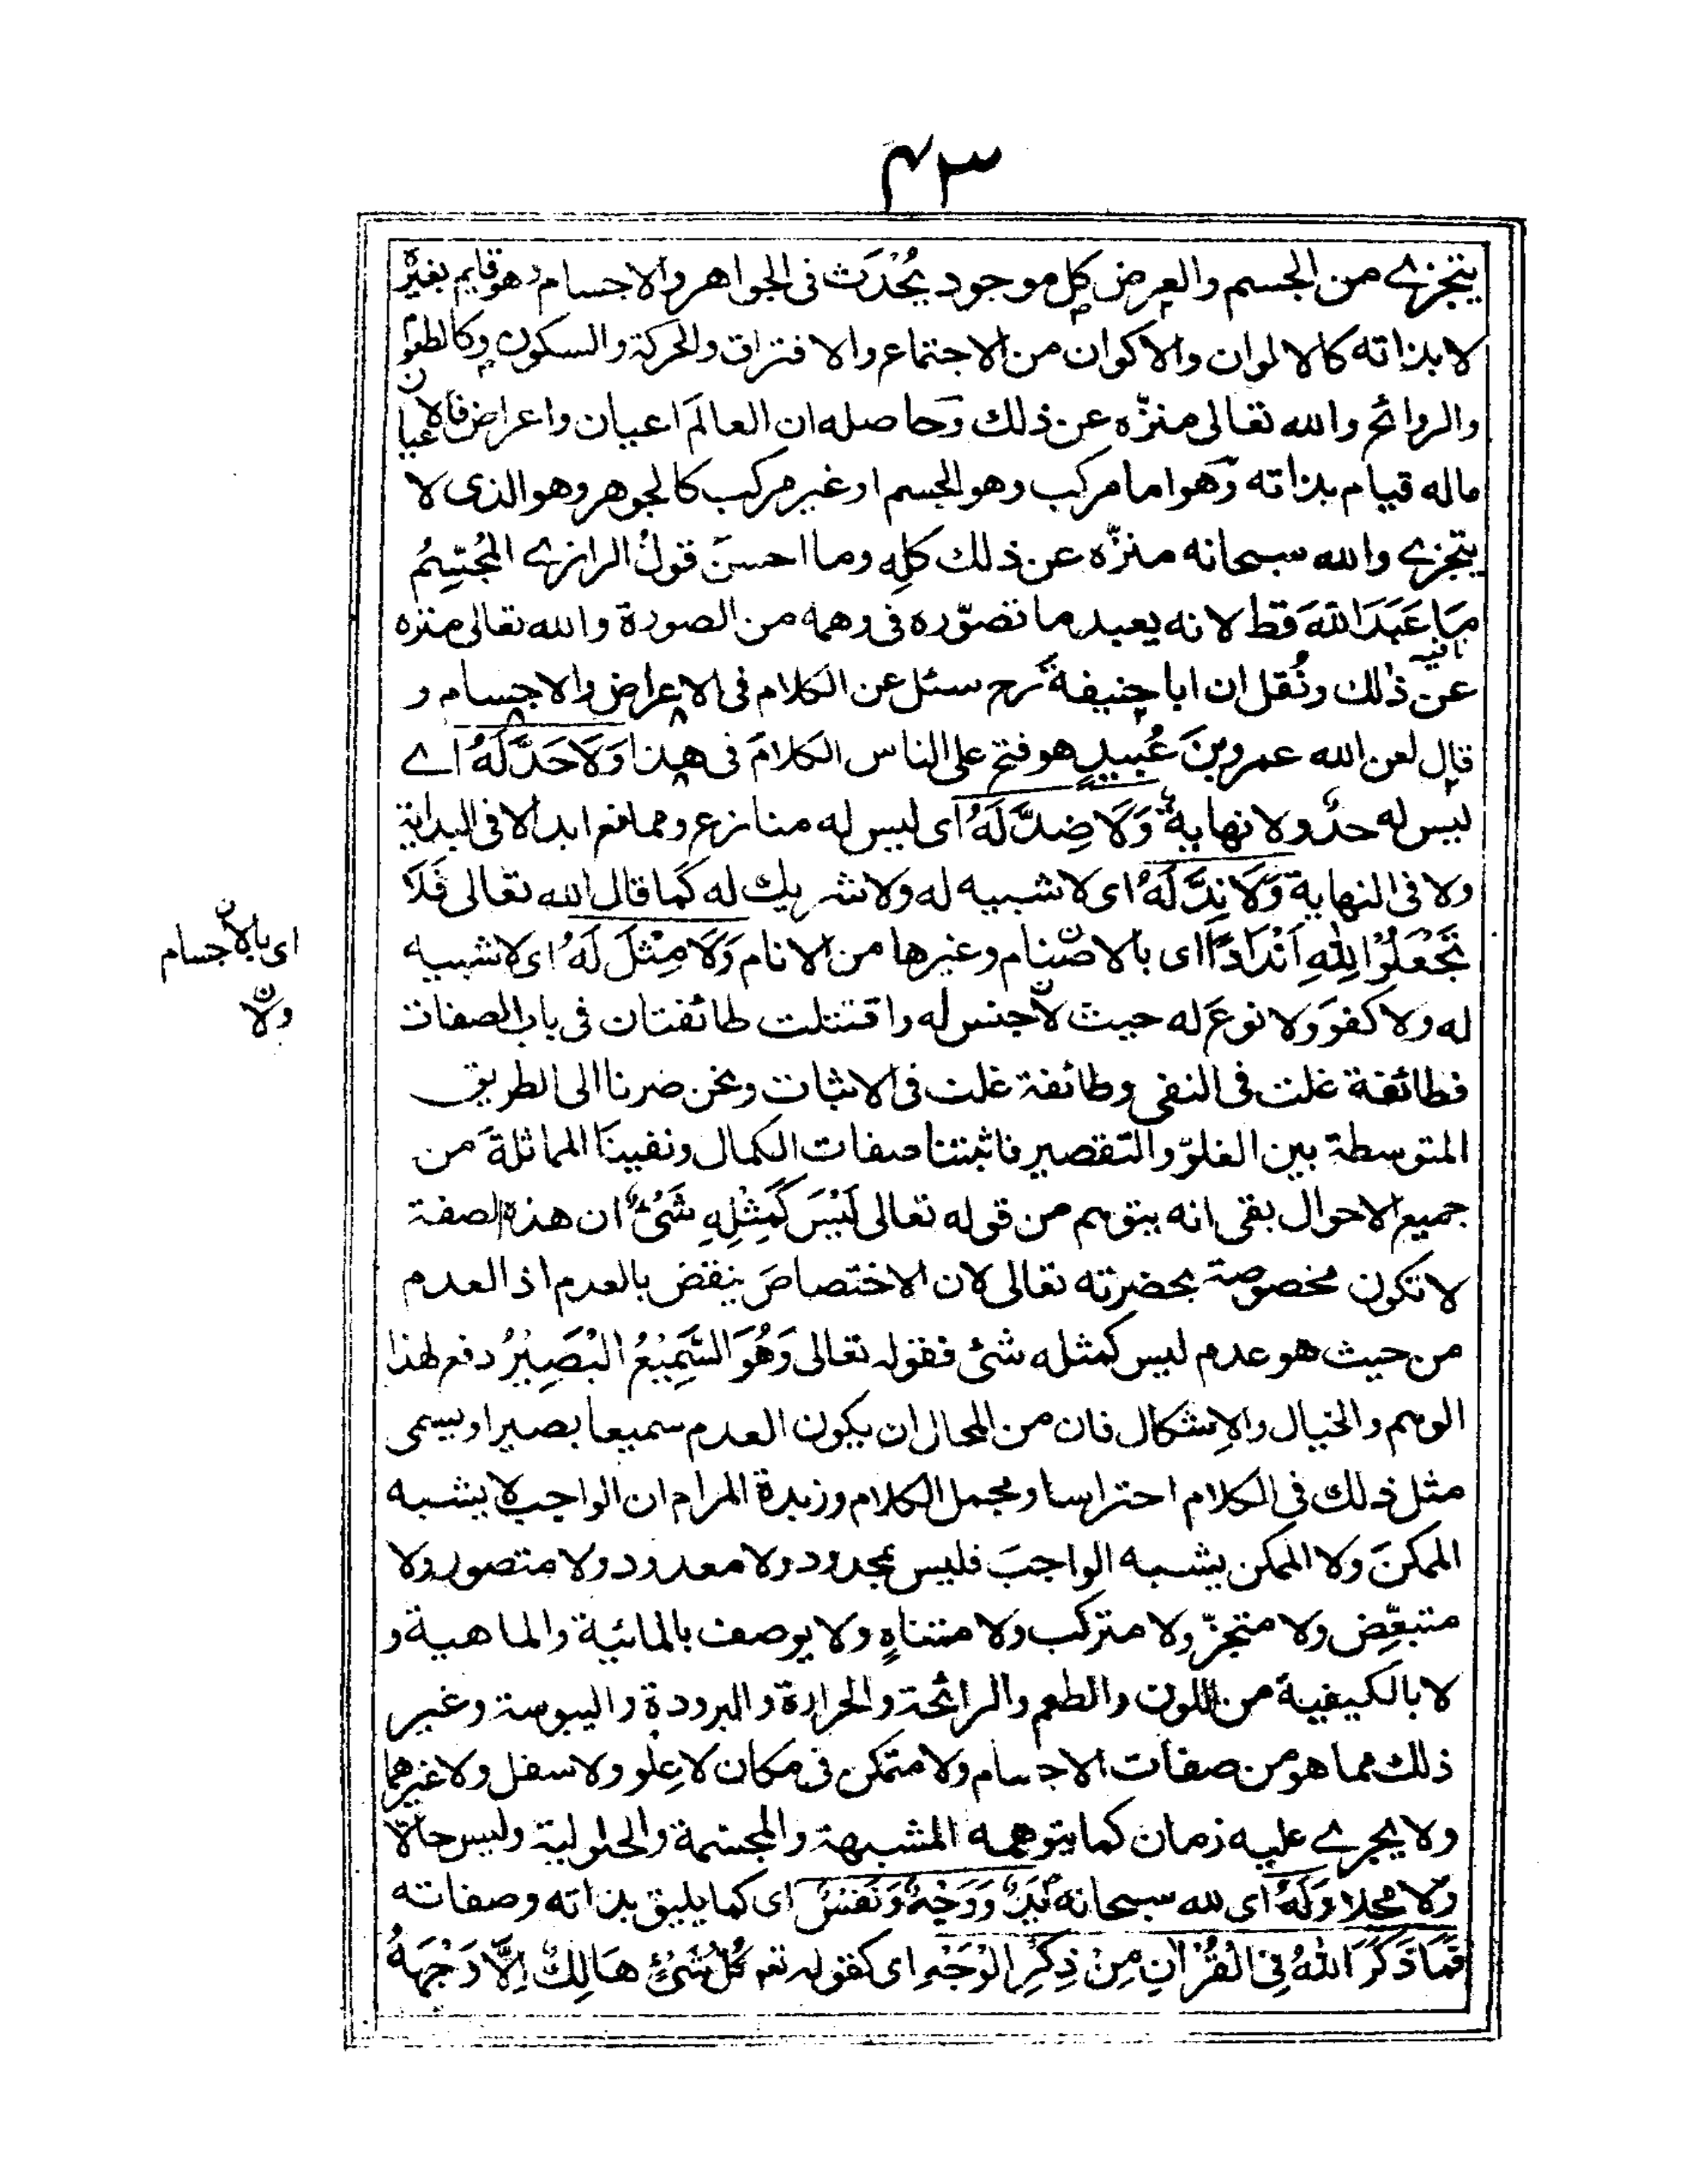 ٤٣
يتجزے من الجسم والعرض كل موجود يُحْدَث فى الجواهر والاجسام وهو قايم بغيره
لا بذاته كالالوان والاكوان من الاجتماع والافتراق والحركة والسكون وكالطعوم
والروائح والله تعالى منزّه عن ذلك وحاصله ان العالَم اعيان واعراض فالاعيان
ماله قيام بذاته وهو اما مركب وهو الجسم او غير مركب كالجوهر وهو الذى لا
يتجزے والله سبحانه منزّه عن ذلك كله وما احسن قولُ الرازے المُجسِّمُ
مَا عَبَدَ اللّٰهَ قط لانه يعبد ما تصوّره فى وهمه من الصورة والله تعالى منزه
عن ذٰلك ونُقل ان ابا حنيفة رح سئل عن الكلام فى الاعراض والاجسام و
قال لعن الله عمرو بنَ عُبيدٍ هو فتح على الناس الكلامَ فى هذا وَلَا حَدَّ لَهُ اے
ليس له حدٌ ولا نهايةٌ وَلَا ضِدَّ لَهُ اى ليس له منازع وممانع ابدا لا فى البداية
ولا فى النهاية وَلَا نِدَّ لَهُ اى لا شبيه له ولا شريك له كما قال الله تعالى فَلَا
تَجْعَلُوْا لِلّٰهِ اَنْدَادًا اى بالاصنام وغيرها من الانام وَلَا مِثْلَ لَهُ اى لا شبيه
اى بالاجسام ن
له ولا كفوَ ولا نوعَ له حيث لا جنس له واقتتلت طائفتان فى باب الصفات
ولا ن
فطائفة غلت فى النفى وطائفة غلت فى الاثبات ونحن صرنا الى الطريق
المتوسطة بين الغلوّ والتقصير فاثبتنا صفات الكمال ونفينا المماثلة من
جميع الاحوال بقى انه يتوهم من قوله تعالى لَيْسَ كَمِثْلِهِ شَئٌ ان هذه الصفة
لا تكون مخصوصة بحضرته تعالى لان الاختصاصَ ينقض بالعدم اذ العدم
من حيث هو عدم ليس كمثله شئ فقوله تعالى وَهُوَ السَّمِيْعُ الْبَصِيْرُ دفع لهذا
الوهم والخيال والاِشكال فان من المحال ان يكون العدم سميعا بصيرا ويسمى
مثل ذلك فى الكلام احتراسا ومجمل الكلام وزبدة المرام ان الواجب لا يشبه
الممكنَ ولا الممكن يشبه الواجبَ فليس بمحدود ولا معدود ولا متصور ولا
متبعِّض ولا متجزّ ولا متركب ولا متناهٍ ولا يوصف بالمائية والماهية و
لا بالكيفية من اللون والطعم والرائحة والحرارة والبرودة واليبوسة وغير
ذلك مما هو من صفات الاجسام ولا متمكن فى مكان لا عِلو ولا سفل ولا غيرهما
ولا يجرے عليه زمان كما يتوهمه المشبهة والمجسّمة والحلولية وليس حالّا
ولا محلا وَلَهُ اى لله سبحانه يَدٌ وَوَجْهٌ وَنَفْسٌ اى كما يليق بذاته وصفاته
فَمَا ذَكَرَ اللّٰهُ فِى الْقُرْاٰنِ مِنْ ذِكْرِ الْوَجْهِ اى كقوله تع كُلُّ شَئٍ هَالِكٌ اِلَّا وَجْهَهُ